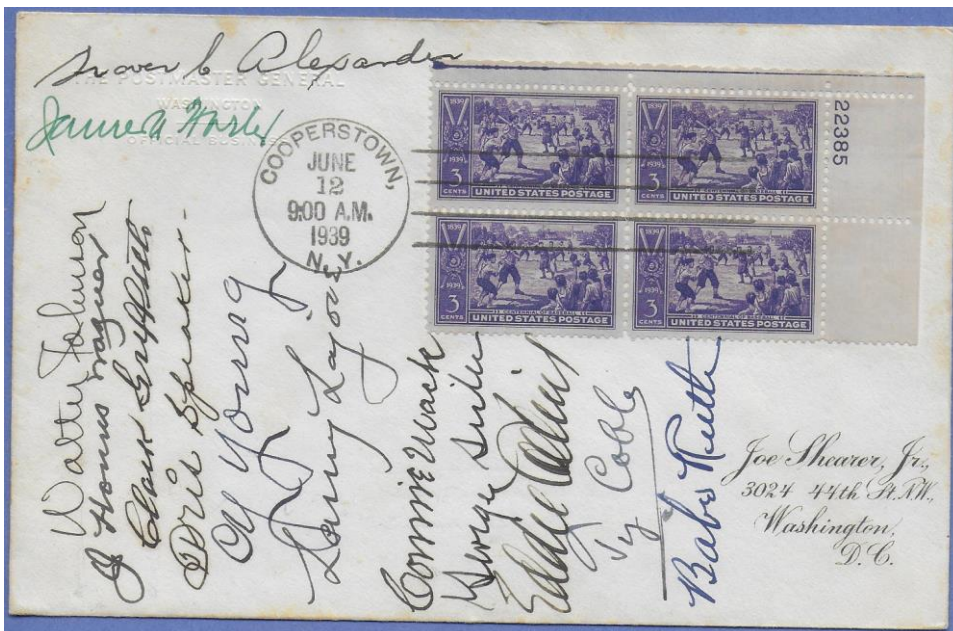 Grover C Alexander
THE POSTMASTER GENERAL
WASHINGTON
OFFICIAL BUSINESS
James A Farley
COOPERSTOWN,
JUNE
12
9:00 A.M.
1939
N.Y.
22385
1839
1939
3
CENTS
UNITED STATES POSTAGE
1839
1939
3
CENTS
UNITED STATES POSTAGE
1839
1939
3
CENTS
CENTENNIAL OF BASEBALL
UNITED STATES POSTAGE
1839
1939
3
CENTS
CENTENNIAL OF BASEBALL
UNITED STATES POSTAGE
Walter Johnson
J Honus Wagner
Clark Griffith
Tris Speaker
Cy Young
Larry Lajoie
Connie Mack
George Sisler
Eddie Collins
Ty Cobb
Babe Ruth
Joe Shearer, Jr.,
3024 44th St. N.W.,
Washington,
D.C.